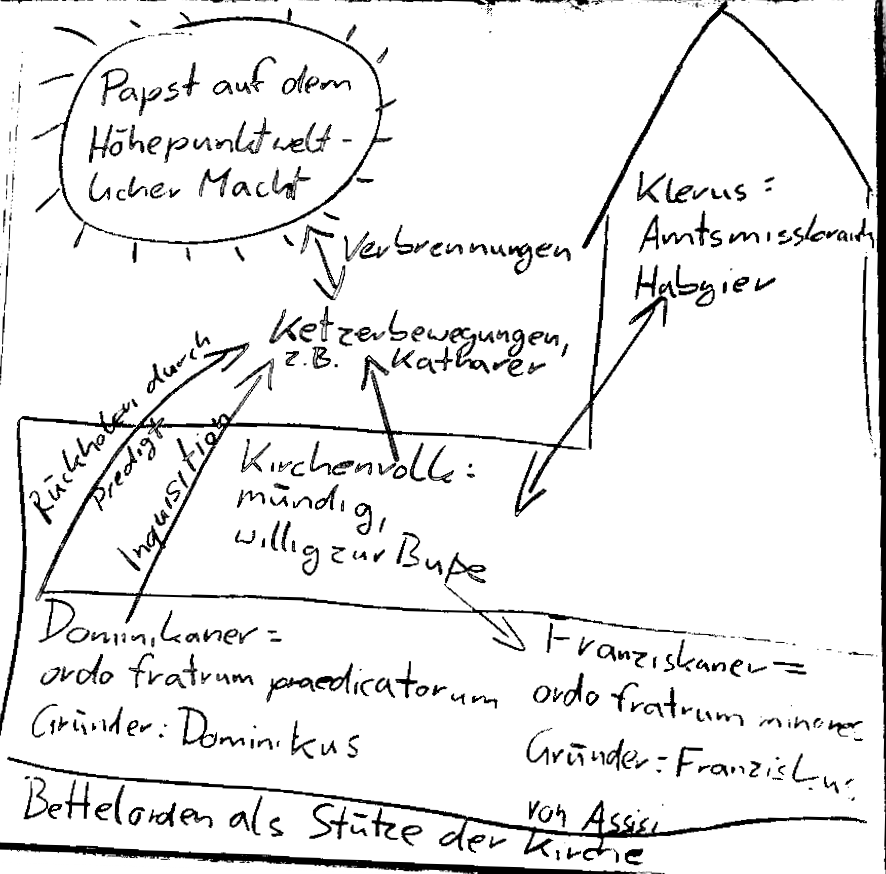 Papst auf dem
Höhepunkt welt-
licher Macht
Klerus =
Amtsmissbrauch
Habgier
Verbrennungen
Ketzerbewegungen,
z.B. Katharer
Rückholen durch
Predigt
Inquisition
Kirchenvolk:
mündig,
willig zur Buße
Dominikaner =
ordo fratrum praedicatorum
Gründer: Dominikus
Franziskaner =
ordo fratrum minores
Gründer = Franziskus
von Assisi
Bettelorden als Stütze der Kirche